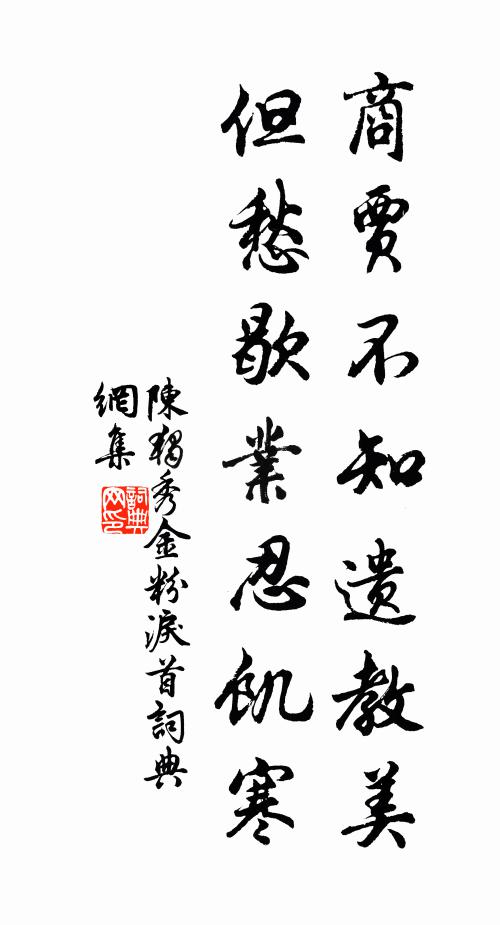 商賈不知遺教美
但愁歇業忍飢寒
陳獨秀金粉淚首詞典
網集
詞典
网印